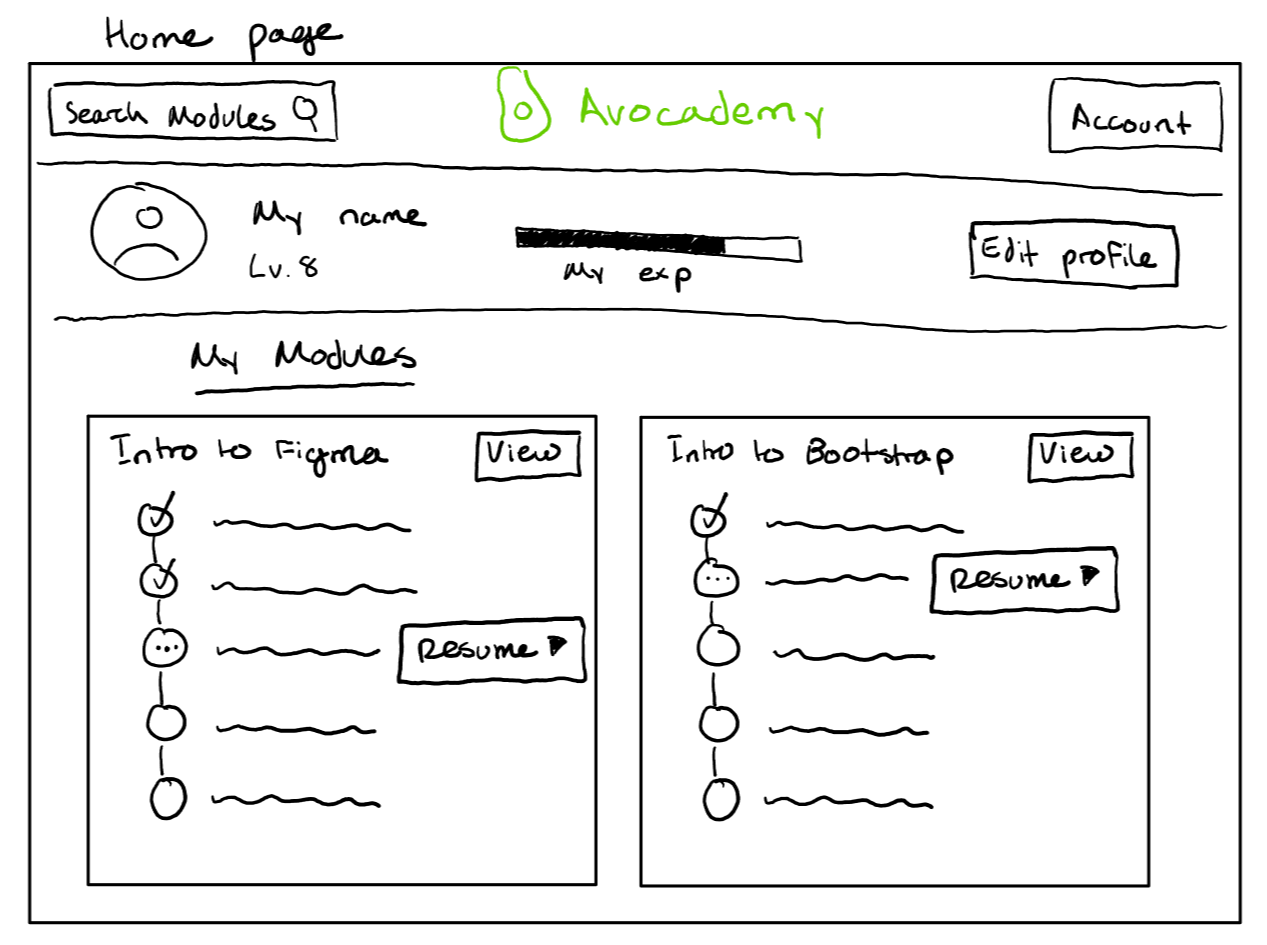 Home page
Search Modules
Avocademy
Account
My name
Lv. 8
My exp
Edit profile
My Modules
Intro to Figma
View
Resume
Intro to Bootstrap
View
Resume